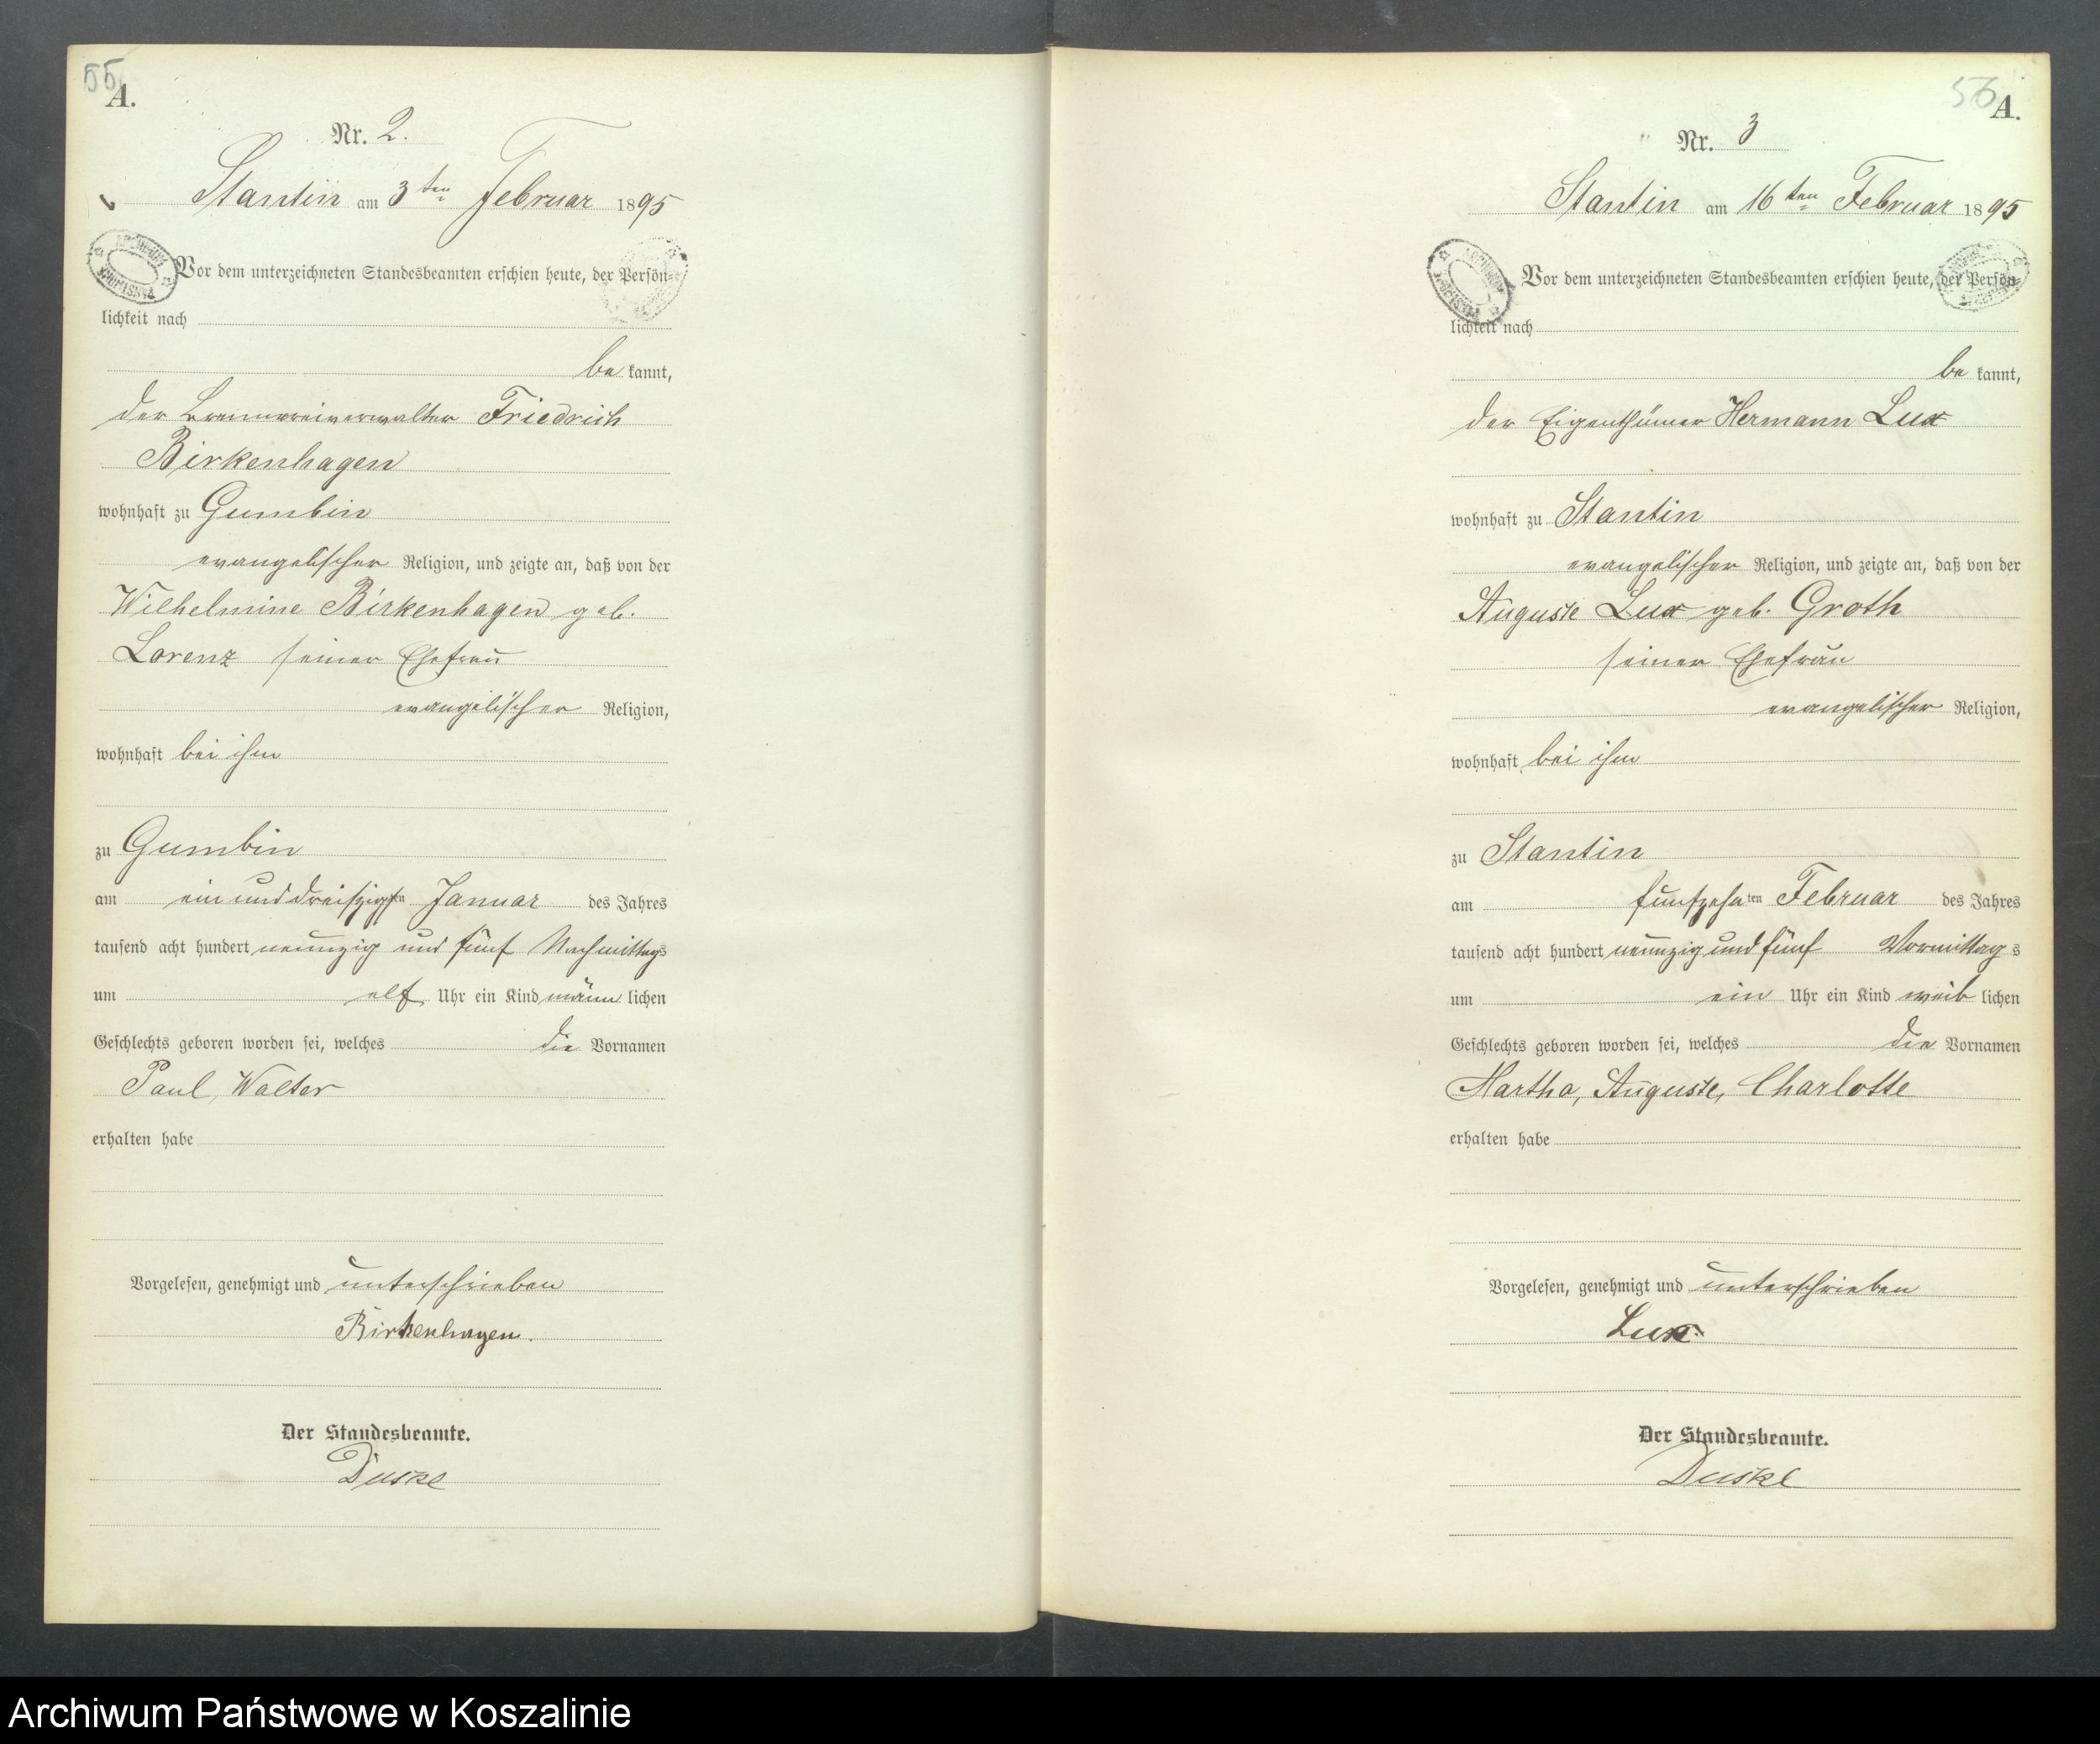 55
A.
Nr. 2.
Stantin am 3ten Februar 1895
Vor dem unterzeichneten Standesbeamten erschien heute, der Persön-
lichkeit nach
be kannt,
der Brennereiverwalter Friedrich
Birkenhagen
wohnhaft zu Gumbin
evangelischer Religion, und zeigte an, daß von der
Wilhelmine Birkenhagen geb.
Lorenz seiner Ehefrau
evangelischer Religion,
wohnhaft bei ihm
zu Gumbin
am ein und dreißigsten Januar des Jahres
tausend acht hundert neunzig und fünf Nachmittags
um elf Uhr ein Kind männlichen
Geschlechts geboren worden sei, welches die Vornamen
Paul, Walter
erhalten habe
Vorgelesen, genehmigt und unterschrieben
Birkenhagen.
Der Standesbeamte.
Duske
56
A.
Nr. 3
Stantin am 16ten Februar 1895
Vor dem unterzeichneten Standesbeamten erschien heute, der Persön-
lichkeit nach
be kannt,
der Eigenthümer Hermann Lux
wohnhaft zu Stantin
evangelischer Religion, und zeigte an, daß von der
Auguste Lux geb. Groth
seiner Ehefrau
evangelischer Religion,
wohnhaft bei ihm
zu Stantin
am funfzehnten Februar des Jahres
tausend acht hundert neunzig und fünf Vormittags
um ein Uhr ein Kind weiblichen
Geschlechts geboren worden sei, welches die Vornamen
Martha, Auguste, Charlotte
erhalten habe
Vorgelesen, genehmigt und unterschrieben
Lux.
Der Standesbeamte.
Duske
Archiwum Państwowe w Koszalinie